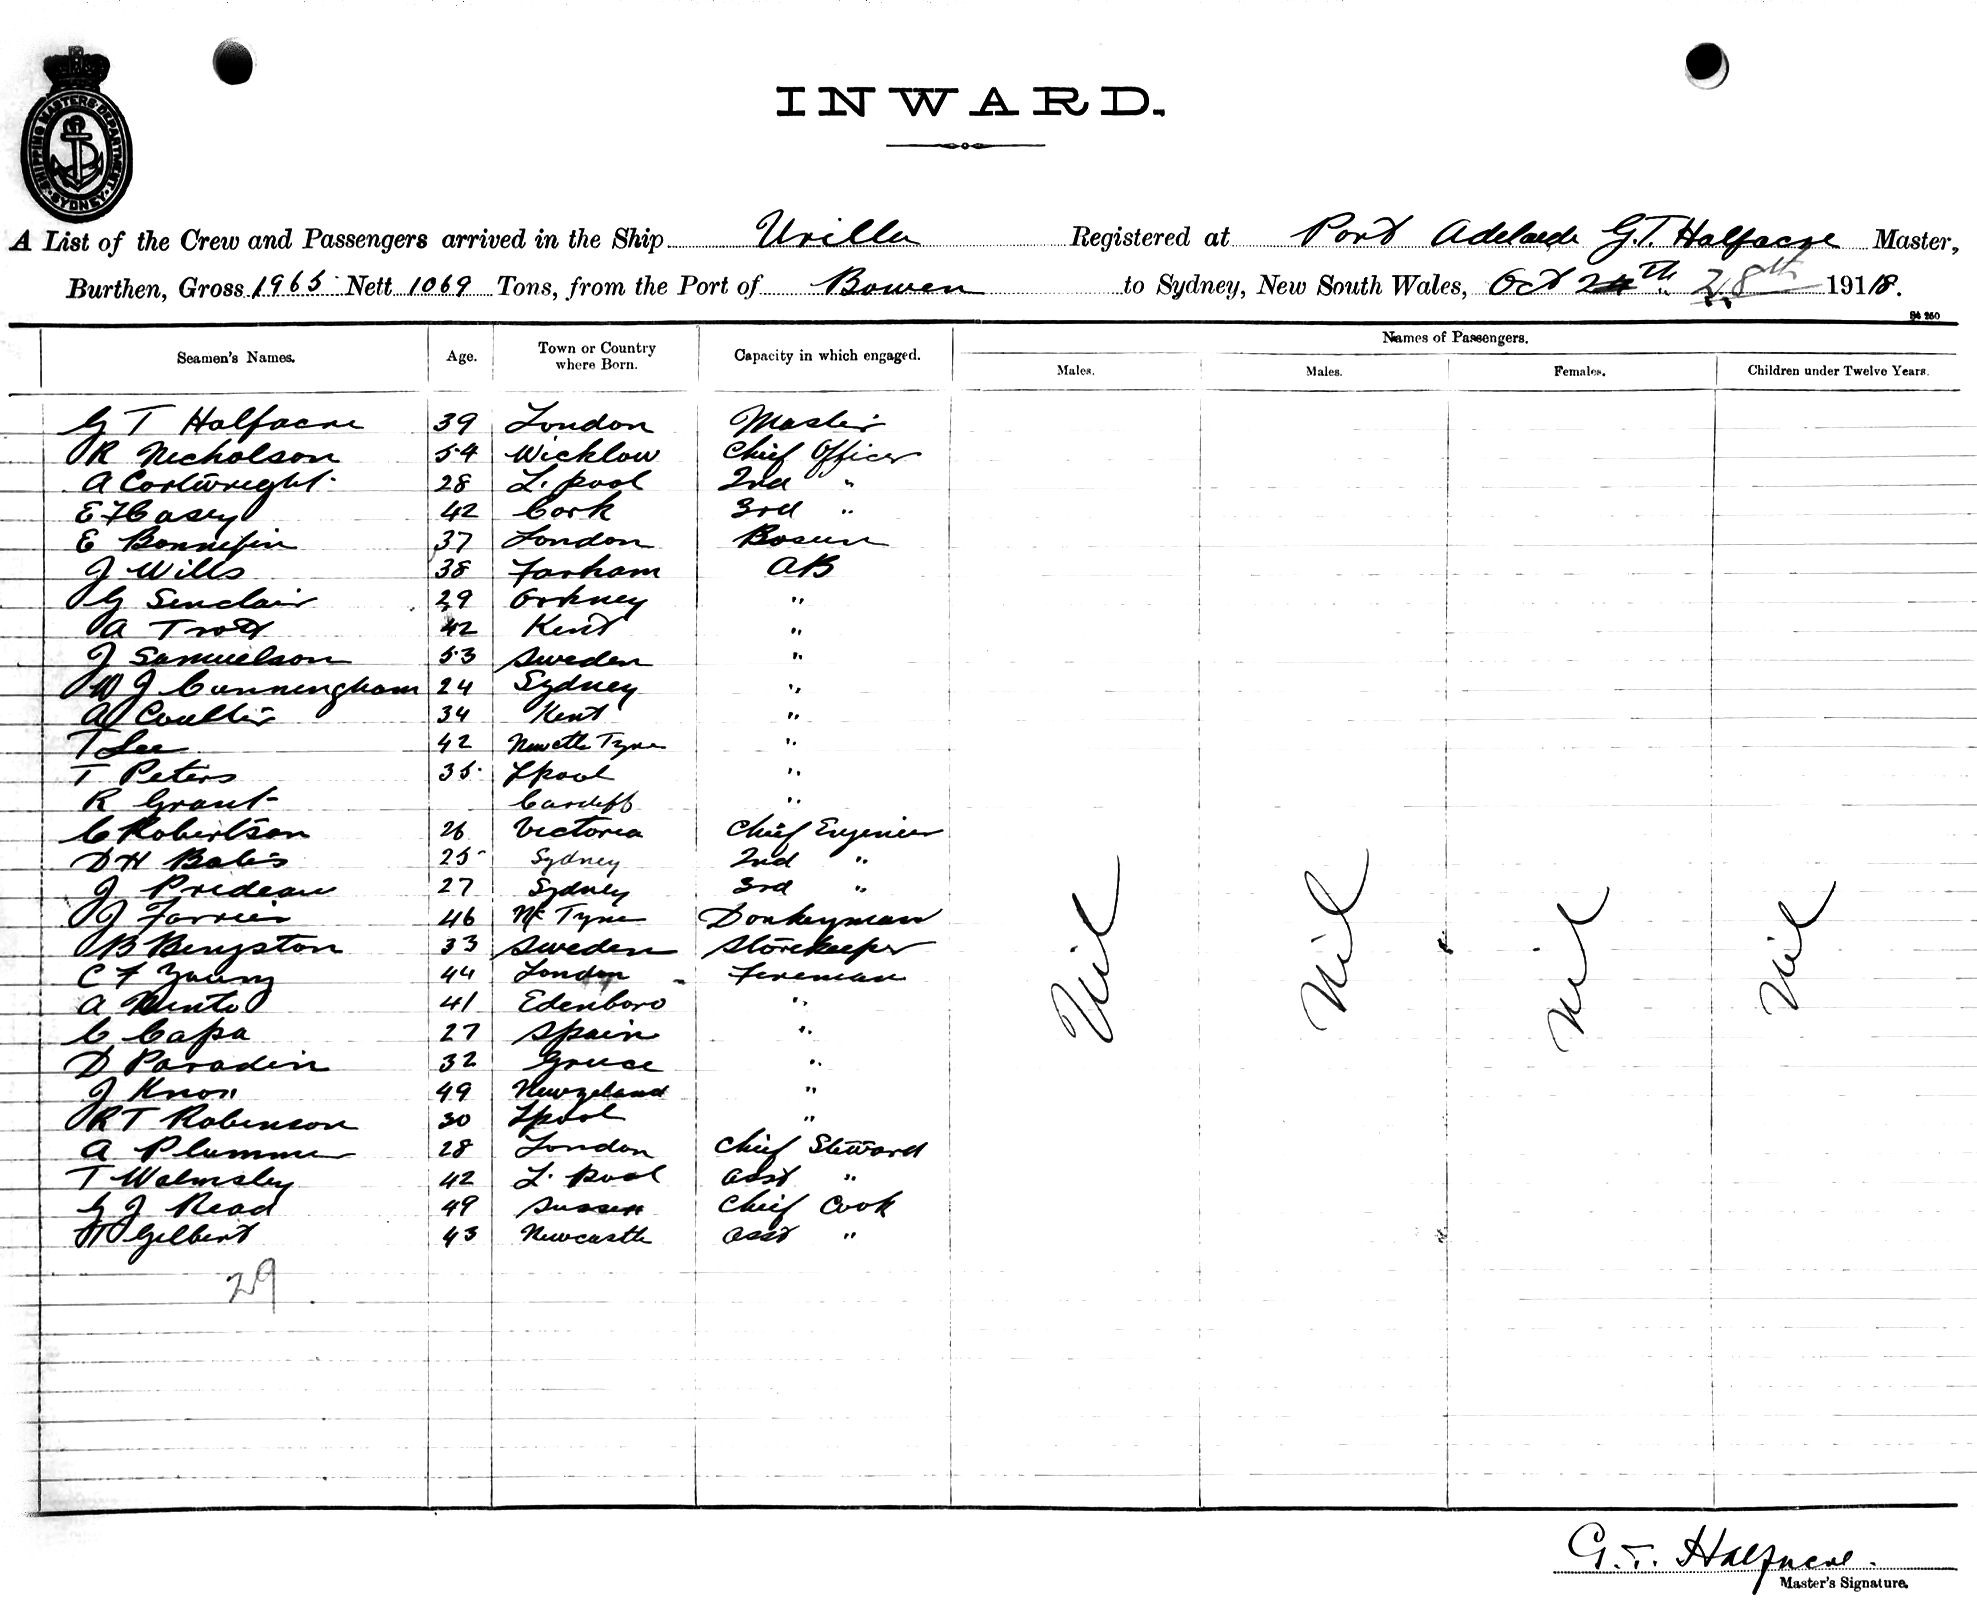 SHIPPING MASTERS DEPARTMENT SYDNEY
INWARD.
A List of the Crew and Passengers arrived in the Ship Urilla Registered at Port Adelaide G.T. Halfacre Master,
Burthen, Gross 1965 Nett 1069 Tons, from the Port of Bowen to Sydney, New South Wales, Oct 24th 28th 1918.
S4 260
Names of Passengers.
Seamen's Names. Age. Town or Country where Born. Capacity in which engaged. Males. Males. Females. Children under Twelve Years.
G T Halfacre 39 London Master
R Nicholson 54 Wicklow Chief Officer
A Cartwright 28 L.pool 2nd "
E F Casey 42 Cork 3rd "
E Bonnefin 37 London Bosun
J Wills 38 Farham AB
G Sinclair 29 Orkney "
A Trott 42 Kent "
J Samuelson 53 Sweden "
W J Cunningham 24 Sydney "
A Coulter 34 Kent "
T Lee 42 Newctle Tyne "
T Peters 35 Lpool "
R Grant Cardiff "
C Robertson 26 Victoria Chief Engineer
D H Bates 25 Sydney 2nd "
J Prideau 27 Sydney 3rd "
J Farrier 46 Nc Tyne Donkeyman
B Bengston 33 Sweden Storekeeper
C F Young 44 London Fireman
A 41 Edenboro "
C Capa 27 Spain "
D Paradin 32 Greece "
J Knox 49 Newzeland "
R T Robinson 30 Lpool "
A Plummer 28 London Chief Steward
T Walmsley 42 L. Pool asst "
G J Read 49 Sussex Chief Cook
H Gilbert 43 Newcastle asst "
Nil Nil Nil Nil
29
G. T. Halfacre.
Master's Signature.